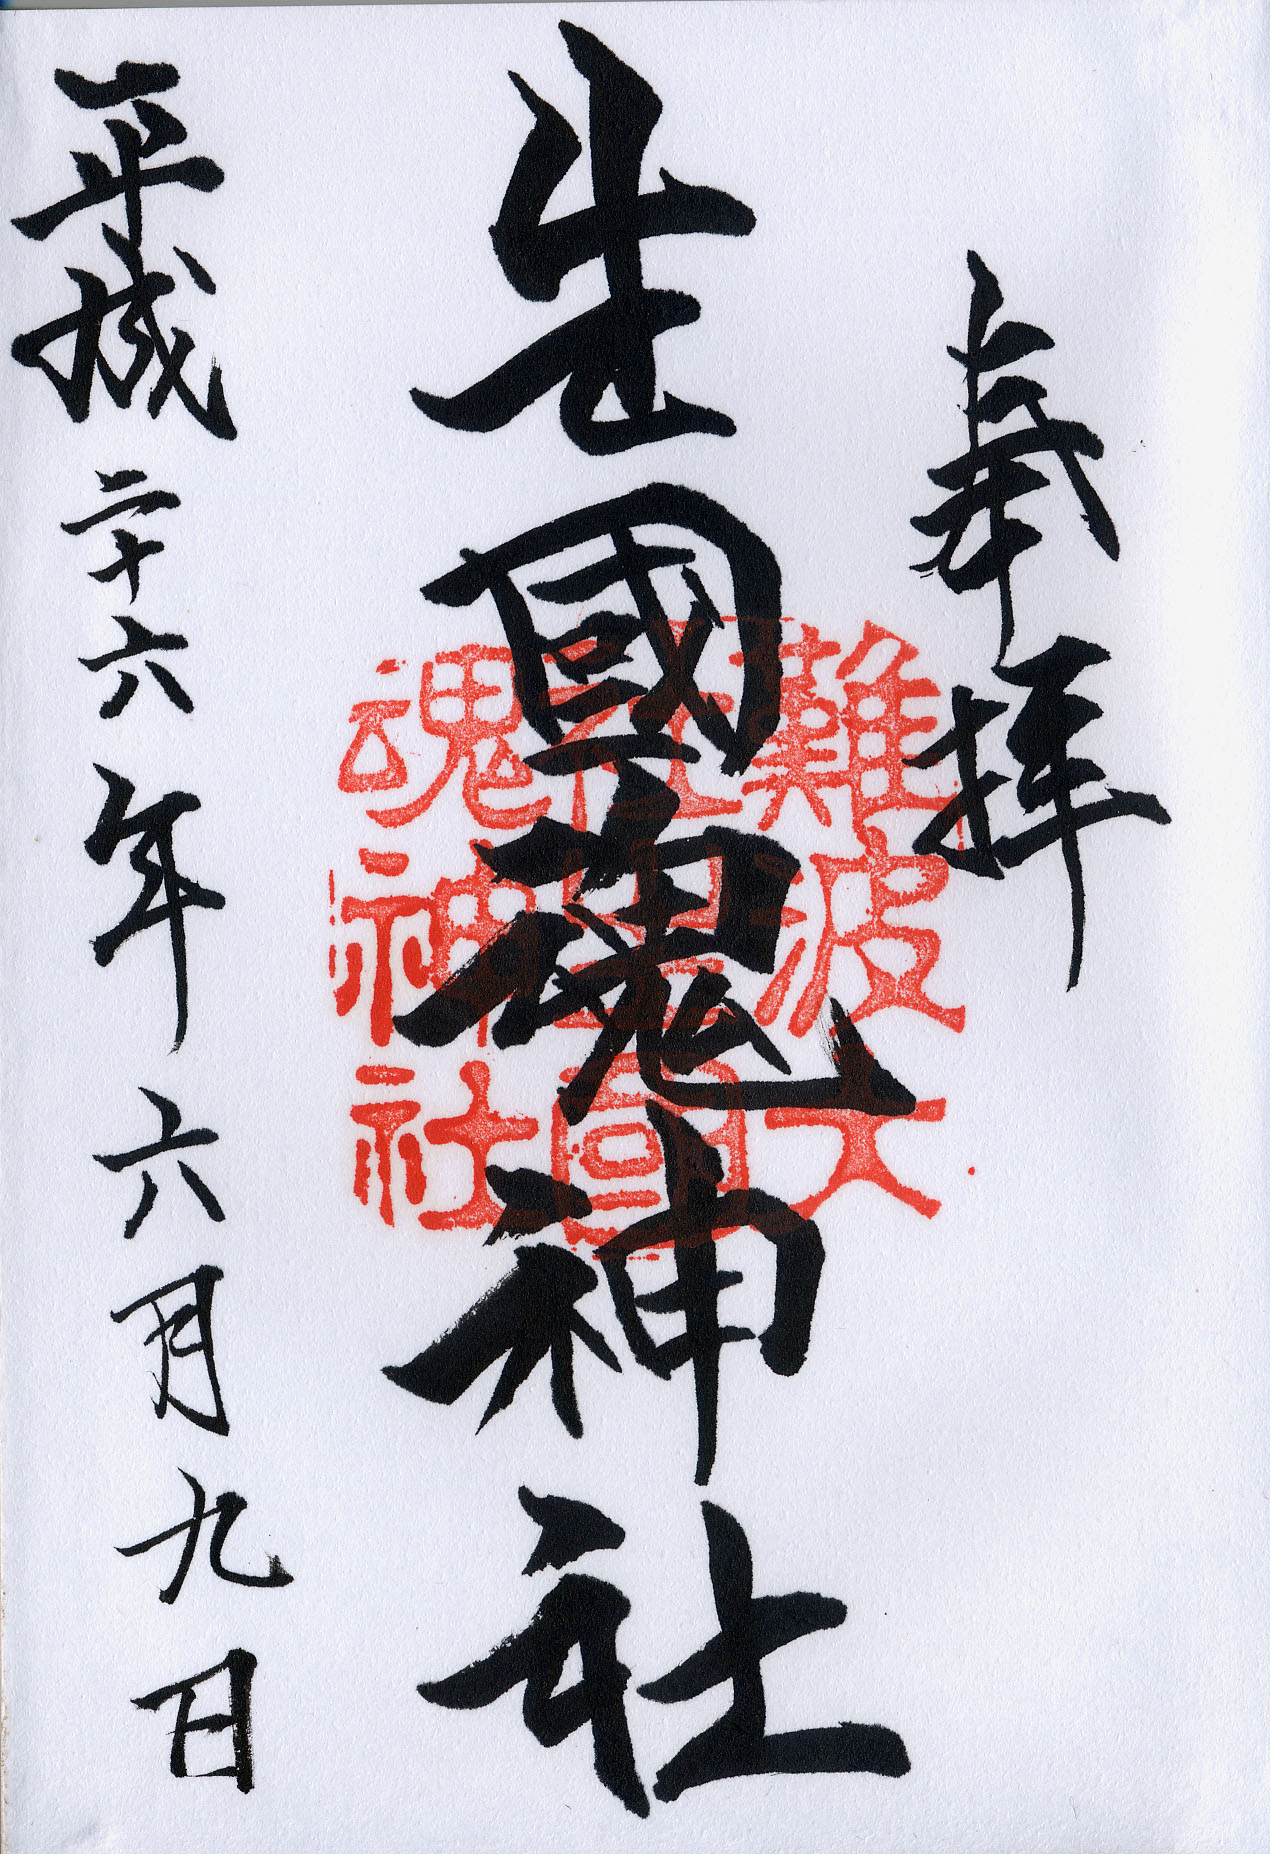 奉拝
生國魂神社
難波大
社生國
魂神社
平成二十六年六月九日